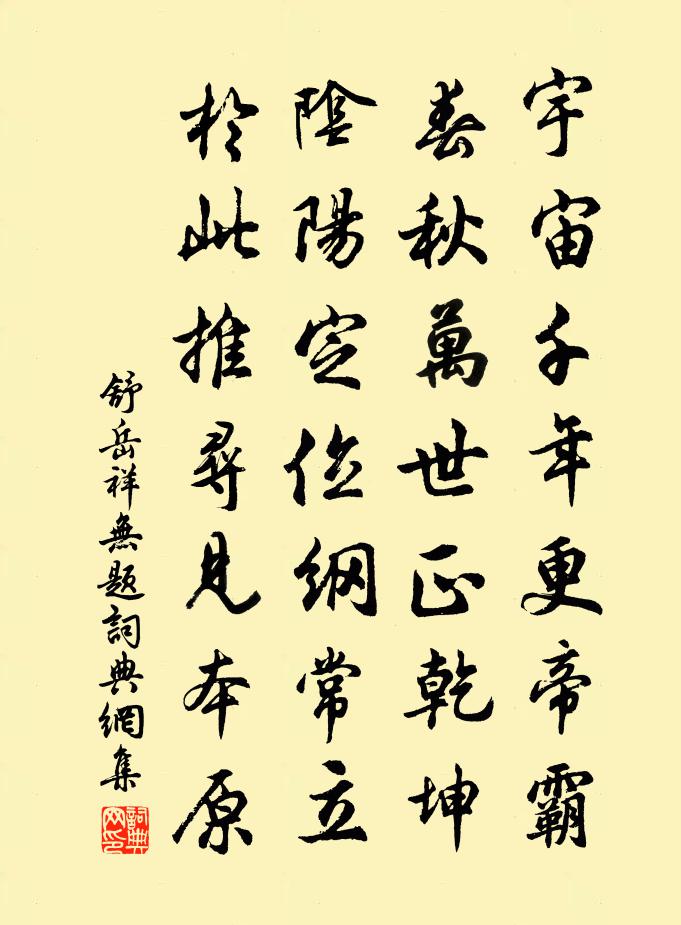 宇宙千年更帝霸
春秋萬世正乾坤
陰陽定位綱常立
於此推尋見本原
舒岳祥無题詞典網集
詞典網印